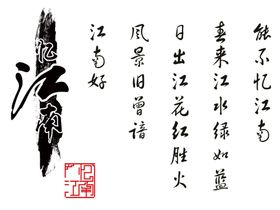 忆江南
江南好
风景旧曾谙
日出江花红胜火
春来江水绿如蓝
能不忆江南